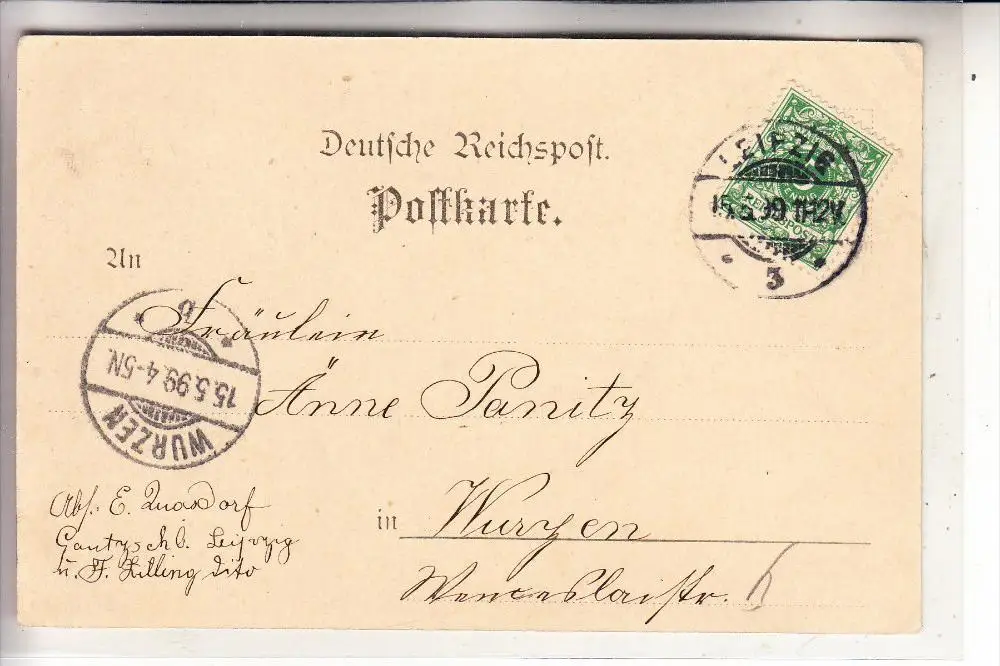 Deutsche Reichspost.
Postkarte.
LEIPZIG
15.5.99 11-12V.
3
REICHSPOST
An
Fräulein
Änne Panitz
in Wurzen
Wenceslaistr.
WURZEN
15.5.99. 4-5N.
Abs. E. Quasdorf
Gautzsch b. Leipzig
u. F. Zilling dito